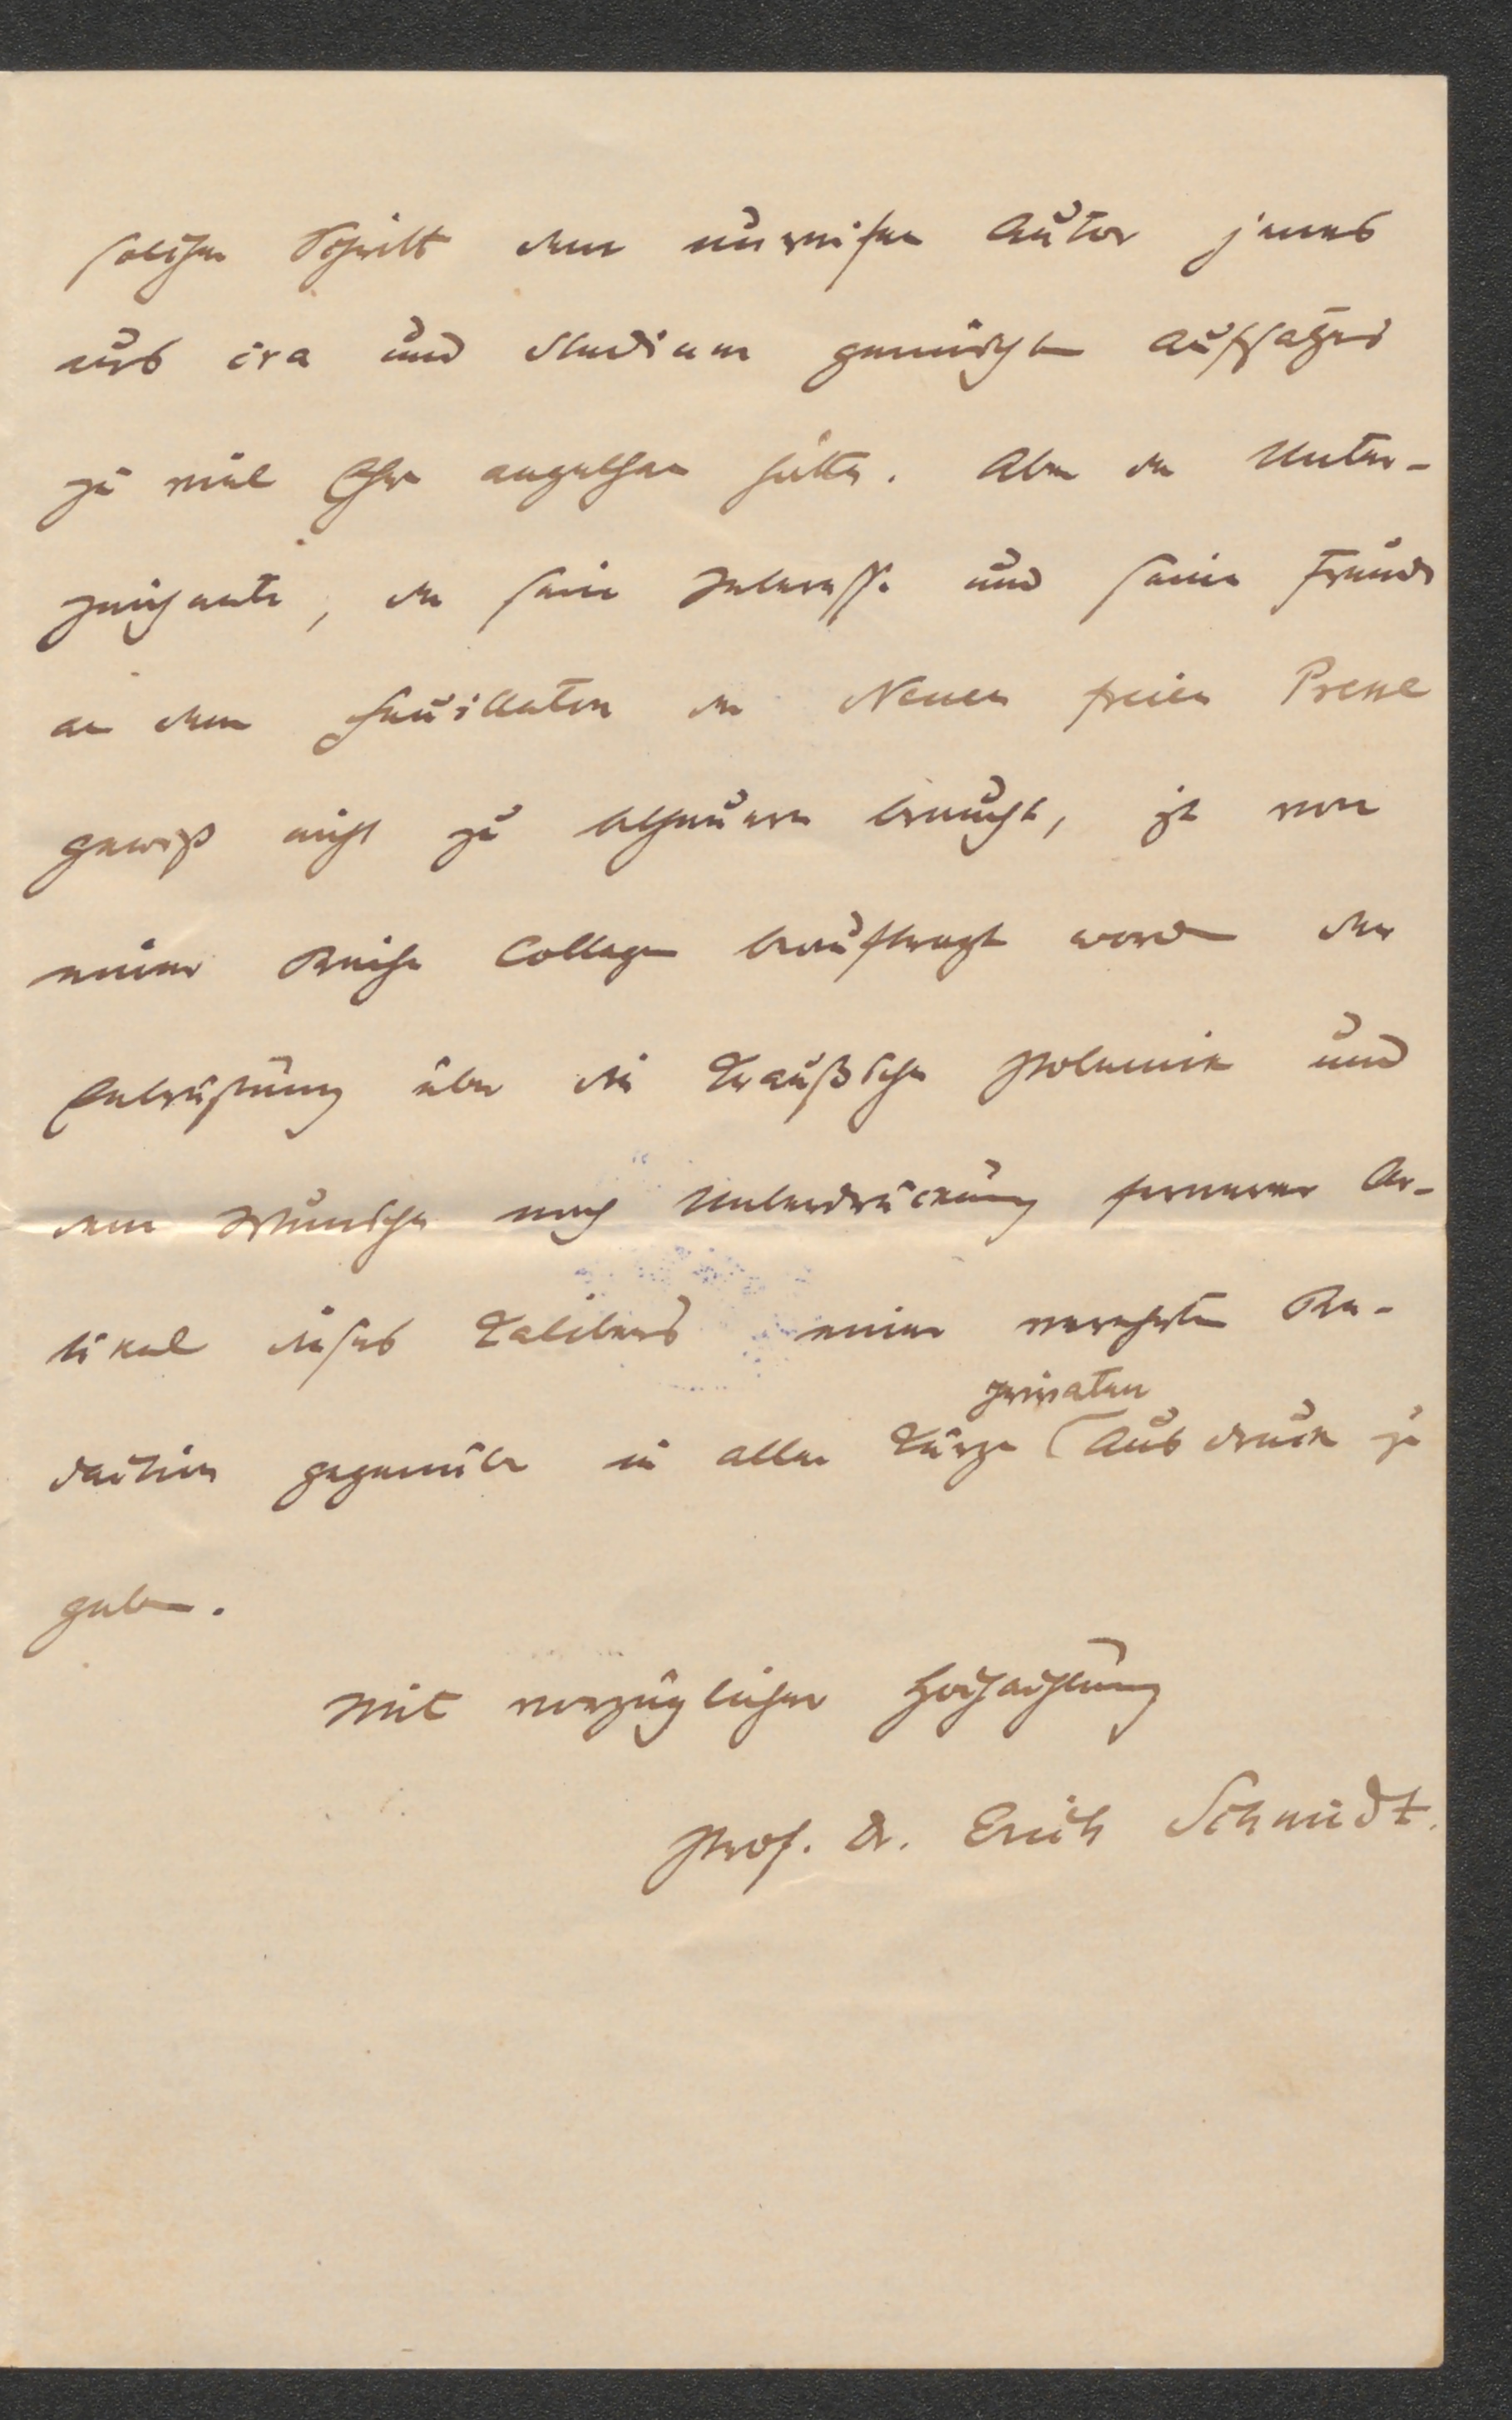 solcher Schritt dem unreifen Autor jenes
aus ira und studium gemischten Aufsatzes
zu viel Ehre angethan hätte. Aber der Unter-
zeichnete, der sein Interesse und seine Freude
an dem Feuilleton der Neuen freien Presse
gewiß nicht zu betheuern braucht, ist von
einer Reihe Collegen beauftragt worden der
Entrüstung über die Kraußsche Polemik und
dem Wunsche nach Unterdrückung fernerer Ar-
tikel dieses Kalibers einer verehrten Re-
daction gegenüber in aller Kürze privaten Ausdruck zu
geben.
Mit vorzüglicher Hochachtung
Prof. Dr. Erich Schmidt.